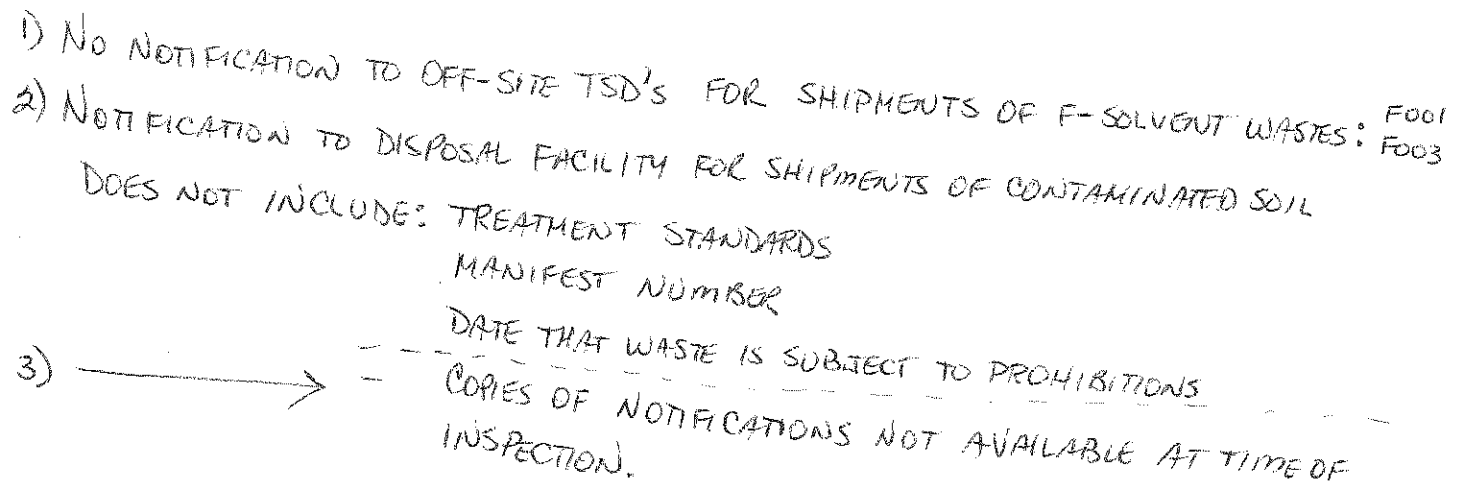 1) NO NOTIFICATION TO OFF-SITE TSD'S FOR SHIPMENTS OF F-SOLVENT WASTES: F001
F003
2) NOTIFICATION TO DISPOSAL FACILITY FOR SHIPMENTS OF CONTAMINATED SOIL
DOES NOT INCLUDE: TREATMENT STANDARDS
MANIFEST NUMBER
DATE THAT WASTE IS SUBJECT TO PROHIBITIONS
3) COPIES OF NOTIFICATIONS NOT AVAILABLE AT TIME OF
INSPECTION.